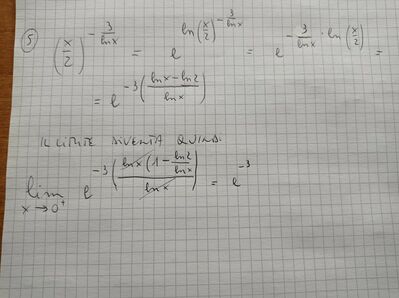 ⑤ (x/2)^(-3/ln x) = e^(ln(x/2)^(-3/ln x)) = e^(-3/ln x · ln(x/2)) =
= e^(-3((ln x - ln 2)/ln x))
IL LIMITE DIVENTA QUINDI
lim x→0⁺ e^(-3(ln x (1 - ln 2/ln x)/ln x)) = e^(-3)